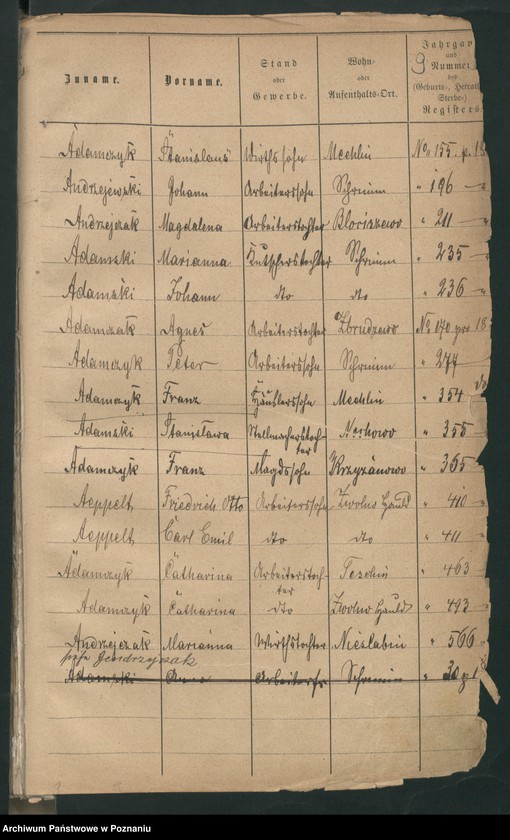 Zuname. Vorname. Stand oder Gewerbe. Wohn- oder Aufenthalts-Ort. Jahrgang und Nummer des (Geburts-, Heirats- Sterbe-) Registers
9
Adamczyk Stanislaus Wirthssohn Mechlin No 155. p. 18
Andrzejewski Johann Arbeiterssohn Schrimm " 196 "
Andrzejczak Magdalena Arbeiterstochter " 211 "
Adamski Marianna Kutscherstochter Schrimm " 235 "
Adamski Johann dto dto " 236 "
Adamczak Agnes Arbeiterstochter Zbrudzewo No 170 pro 18
Adamczyk Peter Arbeiterssohn Schrimm " 274
Adamczyk Franz Häuslerssohn Mechlin " 354 do
Adamski Stanisława Stellmacherstochter " 355 "
Adamczyk Franz Magdssohn Krzyżanowo " 365 "
Aeppelt Friedrich Otto Arbeiterssohn Zwolno Hauld " 410 "
Aeppelt Carl Emil dto dto " 411 "
Adamczyk Catharina Arbeiterstochter " 463 "
Adamczyk Catharina dto Zwolno Hauld " 493 "
Andrzejczak Marianna Wirthstochter Niesłabin " 566 "
Jendrzyczak
Adamski Anna Schrimm " 30 p 18
Archiwum Państwowe w Poznaniu